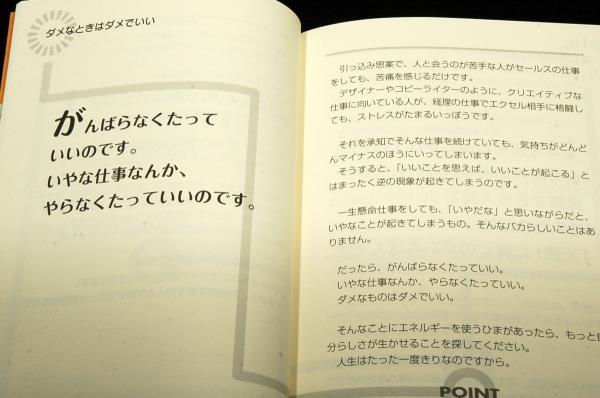 ダメなときはダメでいい
がんばらなくたって
いいのです。
いやな仕事なんか、
やらなくたっていいのです。
引っ込み思案で、人と会うのが苦手な人がセールスの仕事
をしても、苦痛を感じるだけです。
デザイナーやコピーライターのように、クリエイティブな
仕事に向いている人が、経理の仕事でエクセル相手に格闘
しても、ストレスがたまるいっぽうです。
それを承知でそんな仕事を続けていても、気持ちがどんど
んマイナスのほうにいってしまいます。
そうすると、「いいことを思えば、いいことが起こる」と
はまったく逆の現象が起きてしまうのです。
一生懸命仕事をしても、「いやだな」と思いながらだと、
いやなことが起きてしまうもの。そんなバカらしいことはあ
りません。
だったら、がんばらなくたっていい。
いやな仕事なんか、やらなくたっていい。
ダメなものはダメでいい。
そんなことにエネルギーを使うひまがあったら、もっと自
分らしさが生かせることを探してください。
人生はたった一度きりなのですから。
POINT